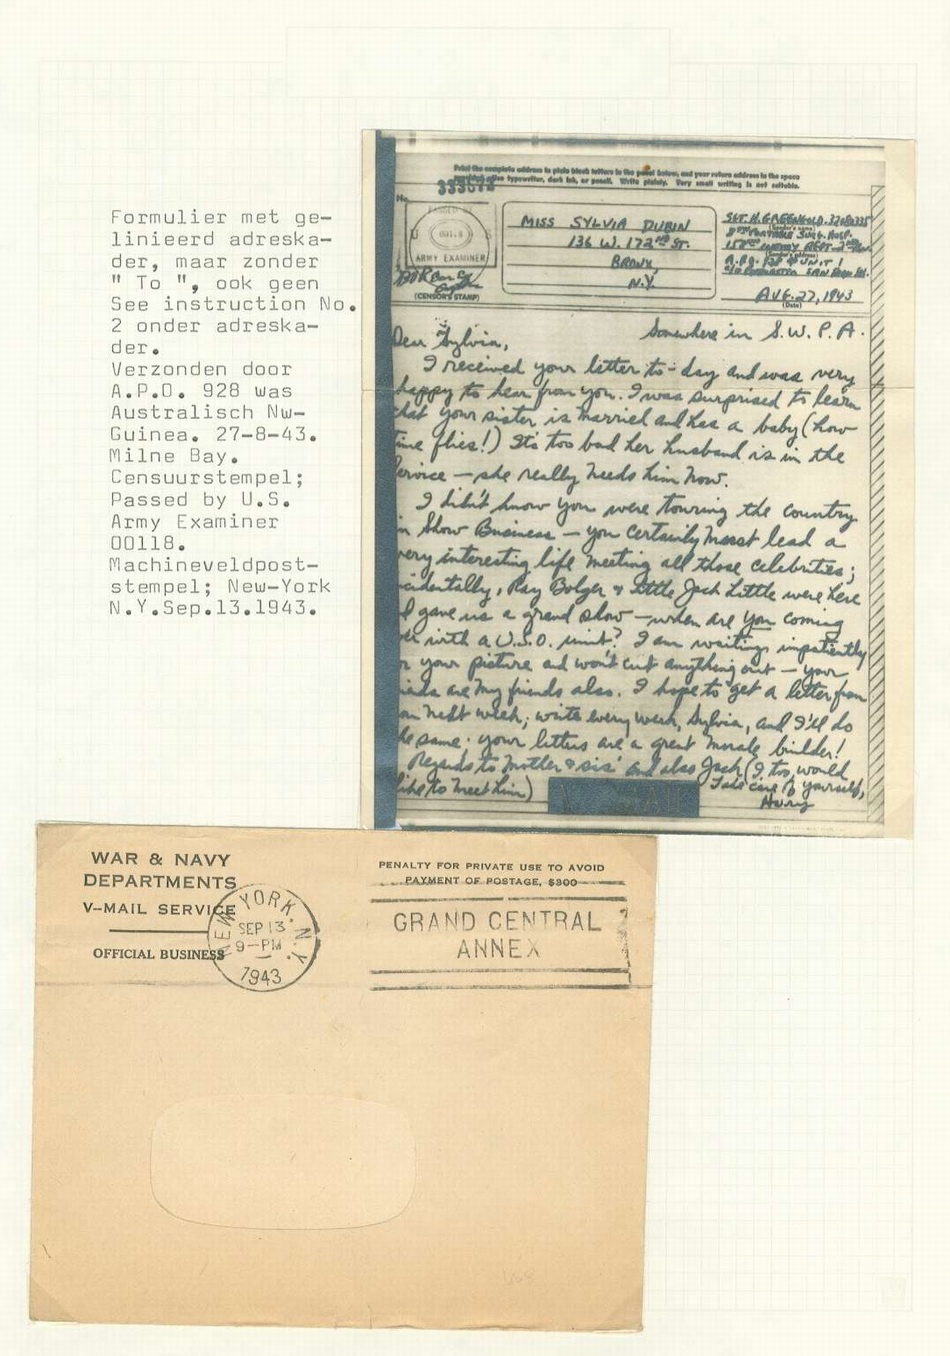 Formulier met ge-
linieerd adreska-
der, maar zonder
" To ", ook geen
See instruction No.
2 onder adreska-
der.
Verzonden door
A.P.O. 928 was
Australisch Nw-
Guinea. 27-8-43.
Milne Bay.
Censuurstempel;
Passed by U.S.
Army Examiner
00118.
Machineveldpost-
stempel; New-York
N.Y.Sep.13.1943.
Print the complete address in plain block letters in the panel below, and your return address in the space
provided. Use typewriter, dark ink, or pencil. Write plainly. Very small writing is not suitable.
No.
PASSED BY
U S
ARMY EXAMINER
(CENSOR'S STAMP)
MISS SYLVIA DUBIN
136 W. 172ND ST.
BRONX,
N.Y.
SGT. H. GREENGOLD
(Sender's name)
PORTABLE SURG. HOSP.
(Sender's address)
AUG. 27, 1943
(Date)
Somewhere in S.W.P.A.
Dear Sylvia,
I received your letter to-day and was very
happy to hear from you. I was surprised to learn
that your sister is married and has a baby (how
time flies!) It's too bad her husband is in the
service — she really needs him now.
I didn't know you were touring the country
in Show Business — you certainly must lead a
very interesting life meeting all those celebrities;
incidentally, Ray Bolger & Little Jack Little were here
& gave us a grand show — when are you coming
over with a U.S.O. unit? I am waiting impatiently
for your picture and won't cut anything out — your
friends are my friends also. I hope to get a letter from
you next week; write every week, Sylvia, and I'll do
the same. your letters are a great morale builder!
Regards to Mother & sis' and also Jack (I too, would
like to meet him) Take care of yourself,
V-MAIL
WAR & NAVY
DEPARTMENTS
V-MAIL SERVICE
OFFICIAL BUSINESS
NEW YORK, N.Y.
SEP 13
9-PM
1943
PENALTY FOR PRIVATE USE TO AVOID
PAYMENT OF POSTAGE, $300
GRAND CENTRAL
ANNEX